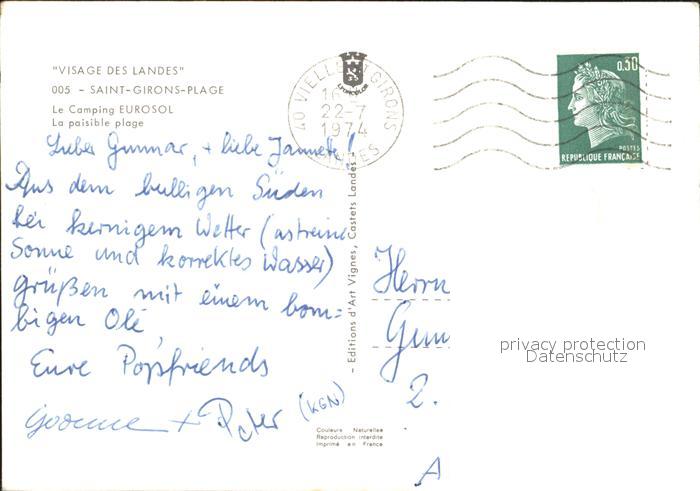 "VISAGE DES LANDES"
005 - SAINT-GIRONS-PLAGE
Le Camping EUROSOL
La paisible plage
Lieber Gunnar, + liebe Jannette!
Aus dem bulligen Süden
bei kernigem Wetter (astreine
Sonne und korrektes Wasser)
grüßen mit einem bom=
bigen Olé
Eure Popsfriends
Yvonne + Peter (KGN)
- Editions d'Art Vignes, Castets Landes -
Couleurs Naturelles
Reproduction interdite
Imprimé en France
40 VIELLE ST GIRONS
22-7
1974
LANDES
0,30
POSTES
REPUBLIQUE FRANCAISE
Herrn
Gunn
2.
A
privacy protection
Datenschutz